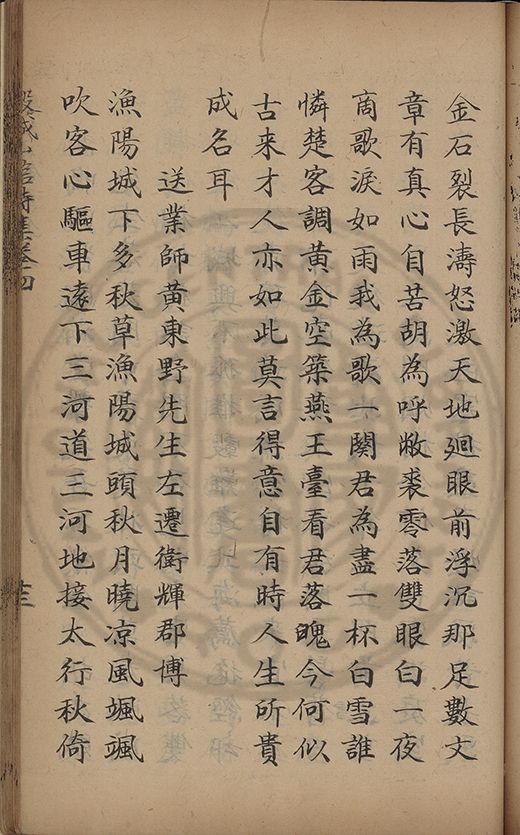 金石裂長濤怒激天地廻眼前浮沉那足數文
章有真心自苦胡為呼敝裘零落雙眼白一夜
商歌淚如雨我為歌一闋君為盡一杯白雪誰
憐楚客調黃金空築燕王臺看君落魄今何似
古来才人亦如此莫言得意自有時人生所貴
成名耳
送業師黃東野先生左遷衛輝郡博
漁陽城下多秋草漁陽城頭秋月曉凉風颯颯
吹客心驅車遠下三河道三河地接太行秋倚